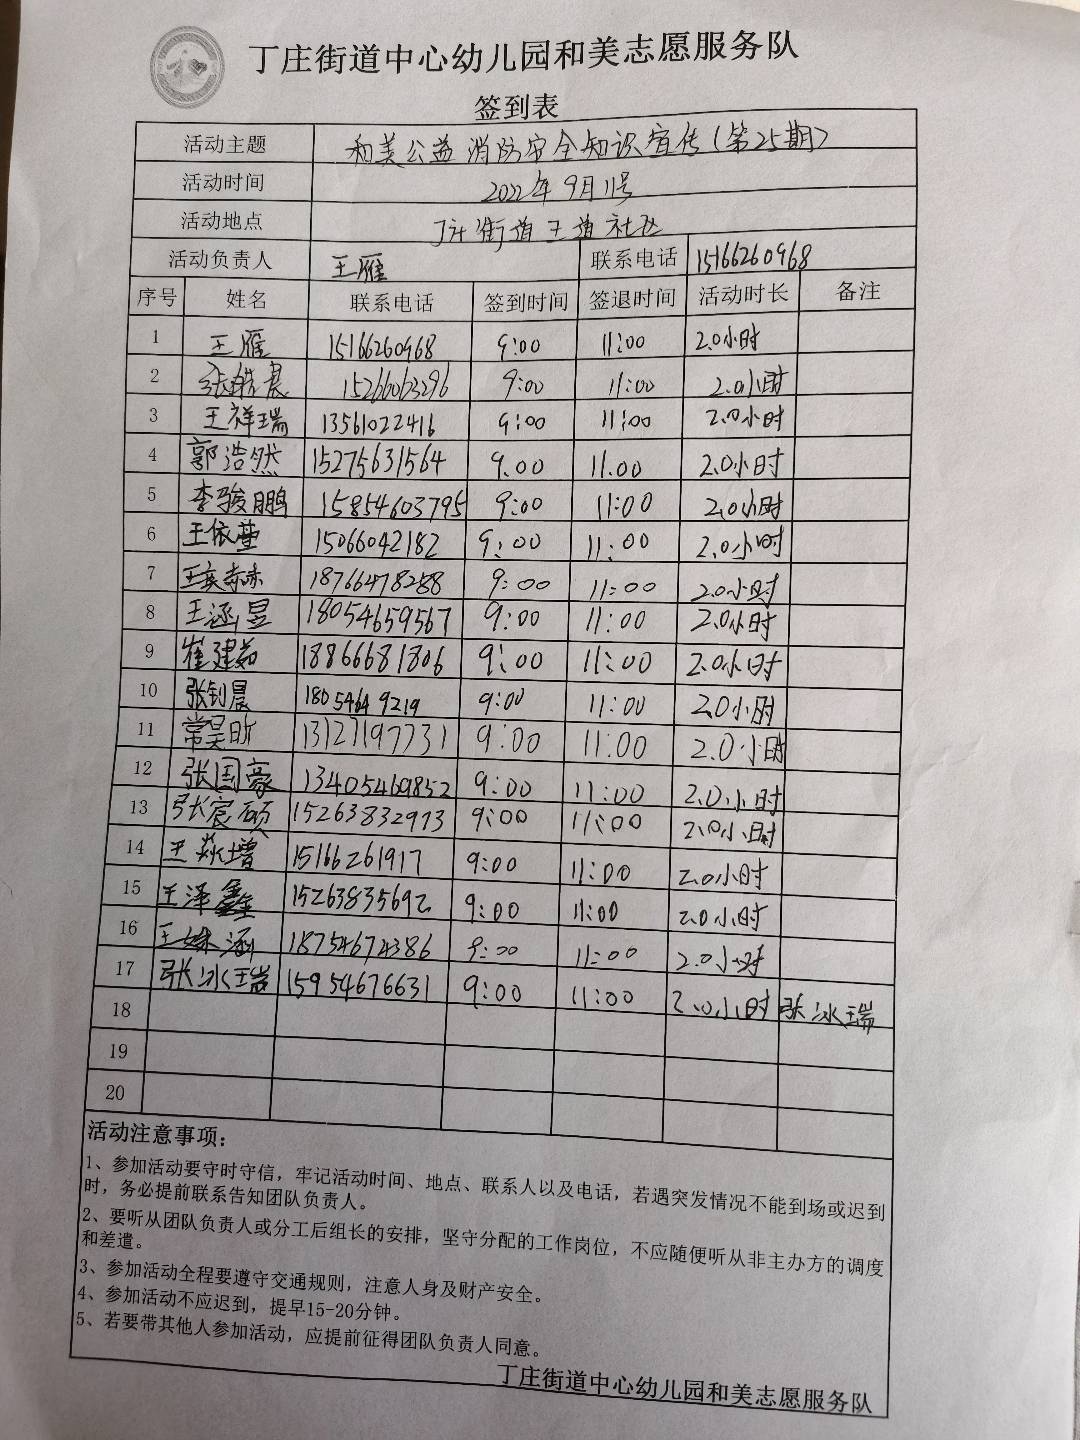 和
丁庄街道中心幼儿园和美志愿服务队
签到表
活动主题 和美公益 消防安全知识宣传(第25期)
活动时间 2022年9月11号
活动地点 丁庄街道王道社区
活动负责人 王雁 联系电话 15166260968
序号 姓名 联系电话 签到时间 签退时间 活动时长 备注
1 王雁 15166260968 9:00 11:00 2.0小时
2 张皓晨 15266063296 9:00 11:00 2.0小时
3 王祥瑞 13561022416 9:00 11:00 2.0小时
4 郭浩然 15275631564 9.00 11.00 2.0小时
5 李骏鹏 15854603795 9:00 11:00 2.0小时
6 王依萱 15066042182 9:00 11:00 2.0小时
7 18766478288 9:00 11:00 2.0小时
8 王涵昱 18054659567 9:00 11:00 2.0小时
9 崔建茹 18866681806 9:00 11:00 2.0小时
10 张钊晨 18054649219 9:00 11:00 2.0小时
11 常昊昕 13127197731 9:00 11:00 2.0小时
12 张国豪 13405469852 9:00 11:00 2.0小时
13 张宸硕 15263832973 9:00 11:00 2.0小时
14 王焱增 15166261917 9:00 11:00 2.0小时
15 王泽鑫 15263835692 9:00 11:00 2.0小时
16 王姝涵 18754674386 9:00 11:00 2.0小时
17 张冰瑞 15954676631 9:00 11:00 2.0小时 张冰瑞
18
19
20
活动注意事项：
1、参加活动要守时守信，牢记活动时间、地点、联系人以及电话，若遇突发情况不能到场或迟到
时，务必提前联系告知团队负责人。
2、要听从团队负责人或分工后组长的安排，坚守分配的工作岗位，不应随便听从非主办方的调度
和差遣。
3、参加活动全程要遵守交通规则，注意人身及财产安全。
4、参加活动不应迟到，提早15-20分钟。
5、若要带其他人参加活动，应提前征得团队负责人同意。
丁庄街道中心幼儿园和美志愿服务队